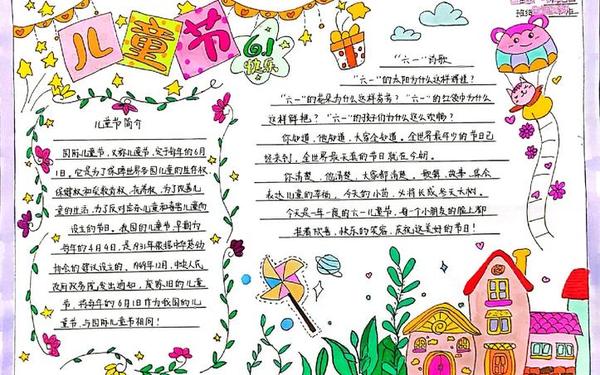 儿童节
6.1
快乐
班级
儿童节简介
国际儿童节，又称儿童节，定于每年的6月
1日。它是为了保障世界各国儿童的生存权
保健权和受教育权、抚养权，为了改善儿
童的生活，为了反对虐杀儿童和毒害儿童而
设立的节日。我国的儿童节，早期为
每年的4月4日，是1931年根据中华慈幼
协会的建议设立的。1949年12月，中央人民
政府政务院发出通知，废除旧的儿童
节，将每年的6月1日作为我国的儿
童节，与国际儿童节相同！
"六一"诗歌
"六一"的太阳为什么这样辉煌？
"六一"的花朵为什么这样芬芳？"六一"的红领巾为什么
这样鲜艳？"六一"的孩子们为什么这么欢畅？
你知道，他知道，大家全知道。全世界最年少的节日已
经来到，全世界最天真的节日就在今朝。
你清楚，他清楚，大家都清楚。歌舞、故事、
表达儿童的幸福。今天的小苗，必将长成参天大树。
今天是一年一度的六一儿童节，每一个小朋友的脸上都
挂着欣喜、快乐的笑容，庆祝这美好的节日！